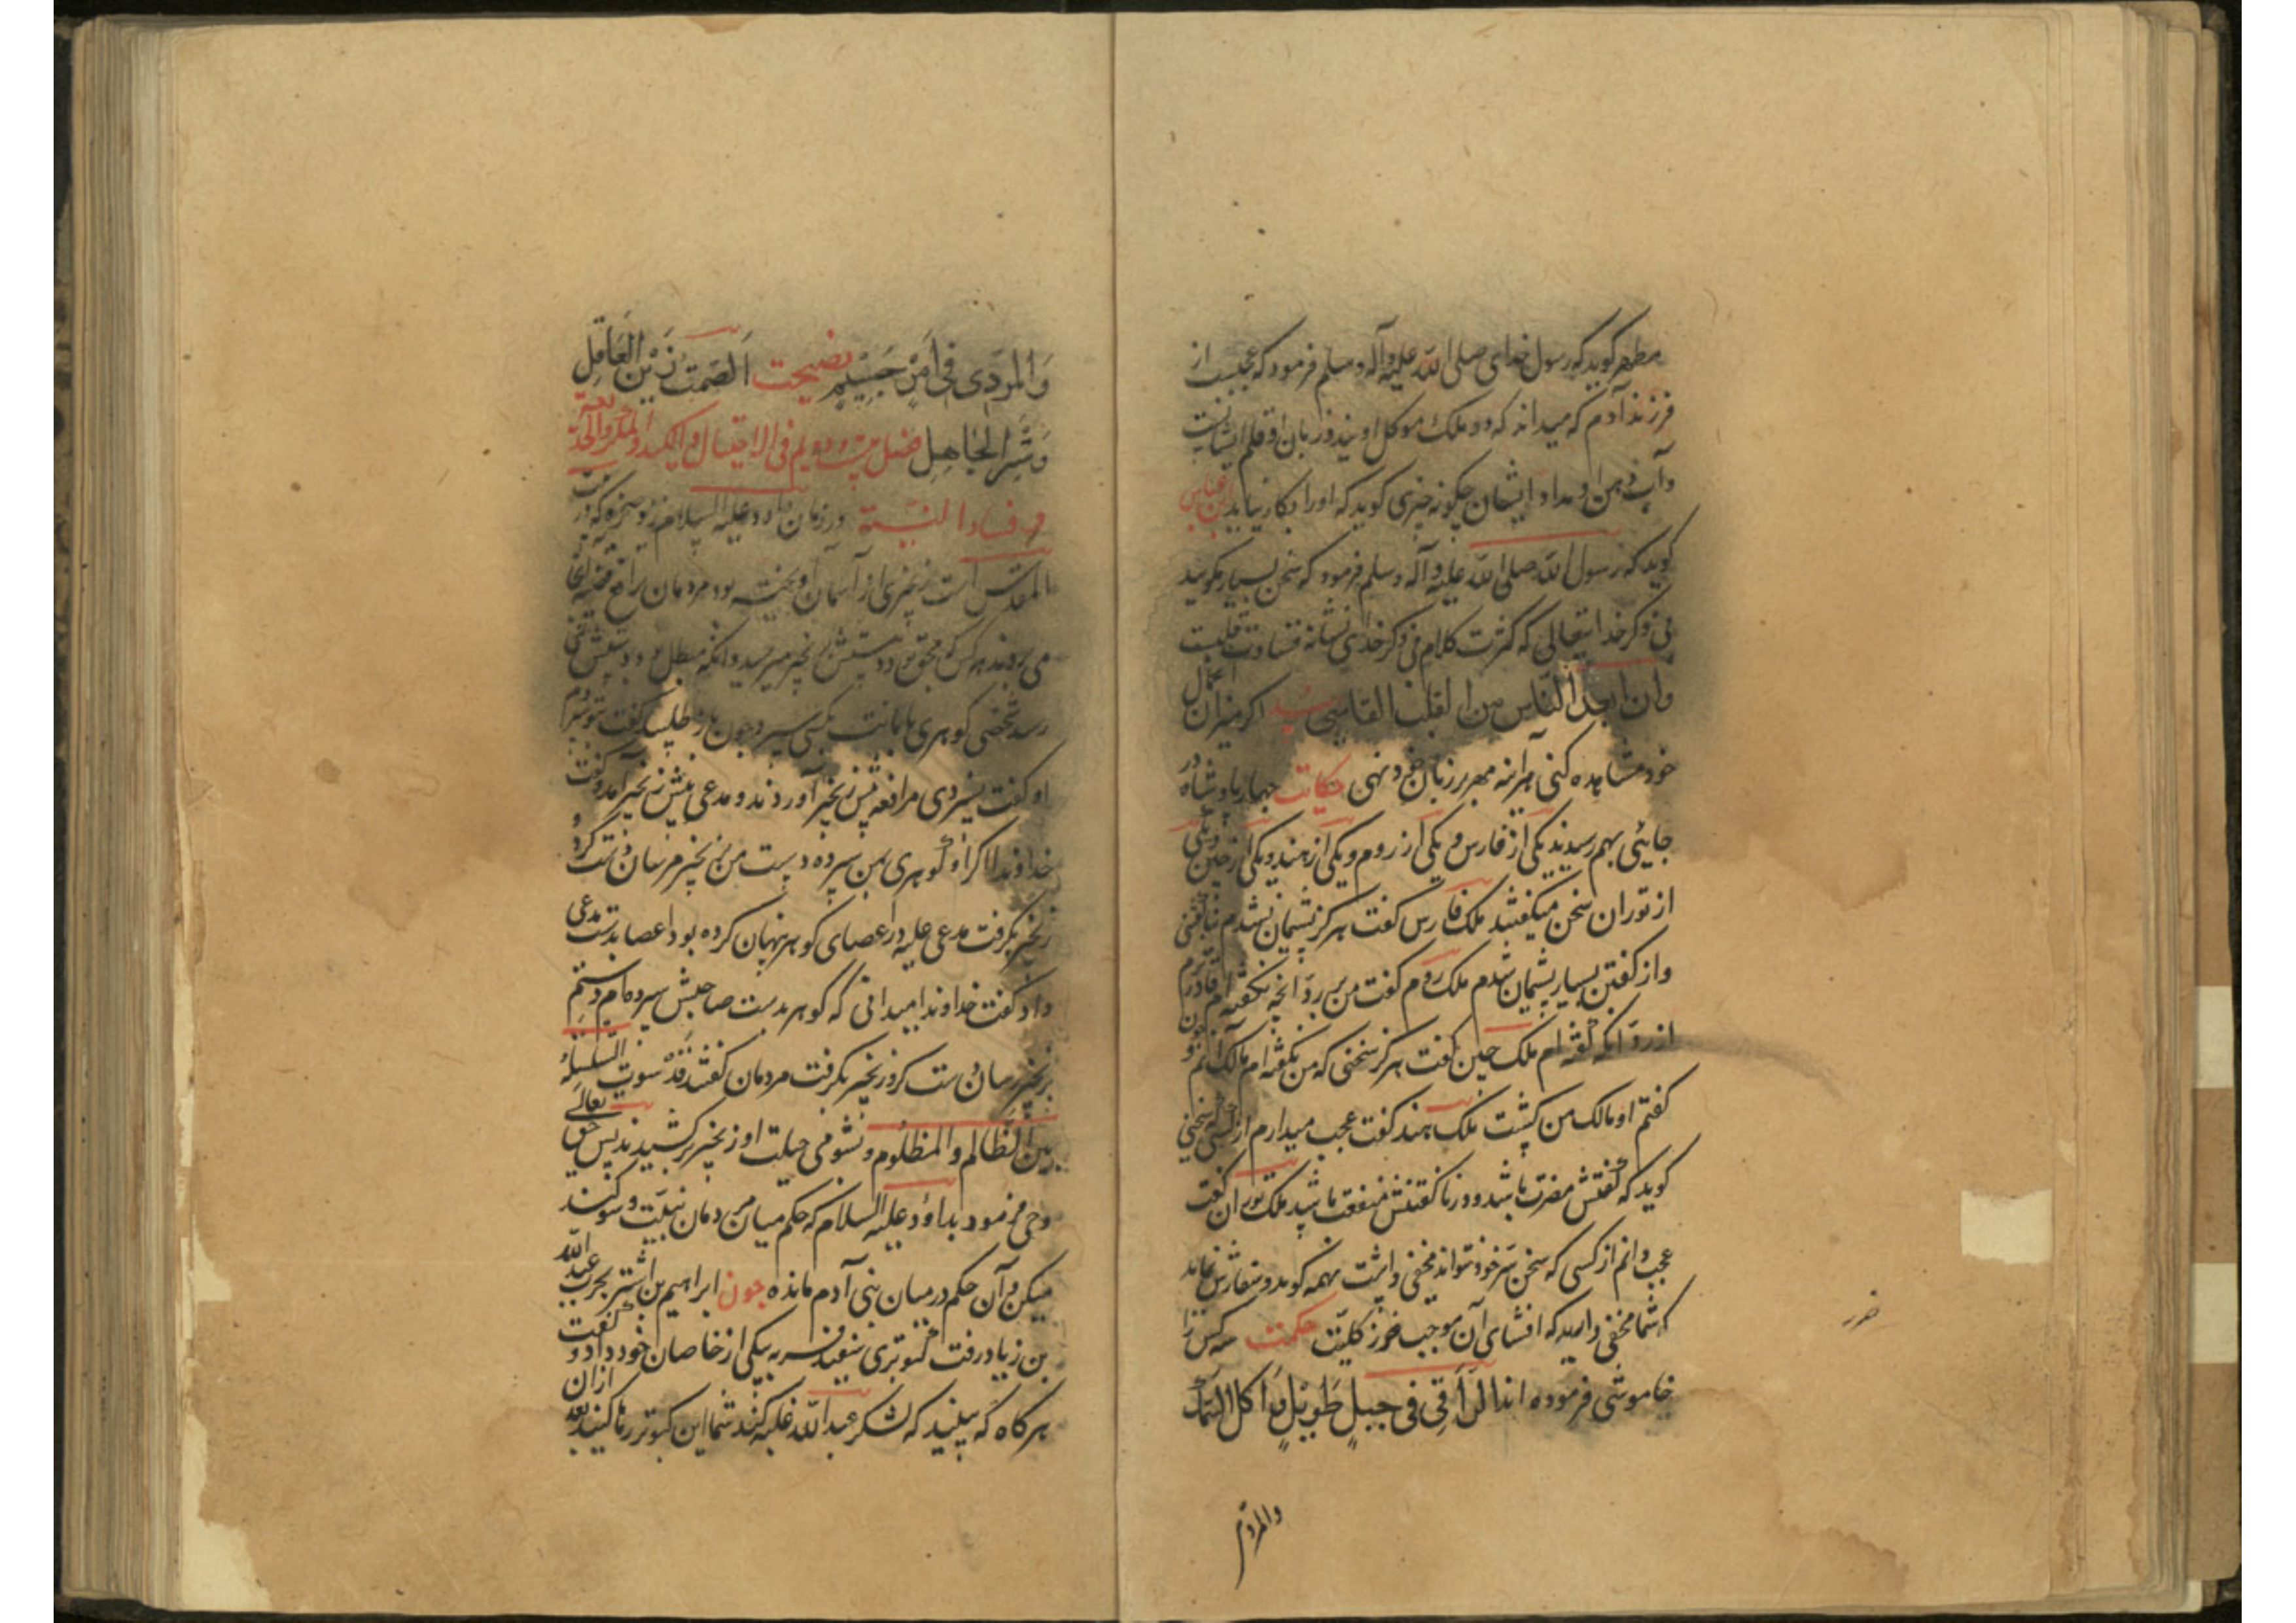 مطهر گوید که رسول خدای صلی الله علیه وآله وسلم فرمود که عجبست از
فرزند آدم که میداند که دو ملک موکل اویند و زبان او قلم ایشانست
وآب دهن او مداد ایشان چگونه چیزی گوید که اورا بکار نیاید ابن عباس
گوید که رسول الله صلی الله علیه وآله وسلم فرمود که سخن بسیار مگویید
بی ذکر خدایتعالی که کثرت کلام بی ذکر خدای نشانه قساوت قلبست
وان ابعد الناس من الله القلب القاسی اگر میزان اعمال
خود مشاهده کنی هرآینه مهر بر زبان خود نهی حکایت چهار پادشاه در
جایی بهم رسیدند یکی از فارس و یکی از روم و یکی از هند و یکی از چین ویکی
از توران سخن میگفتند ملک فارس گفت هرگز پشیمان نشدم بناگفتنی
واز گفتن بسیار پشیمان شدم ملک روم گفت من بر رد آنچه نگفته ام قادرترم
از رد آنکه گفته ام ملک چین گفت هرگز سخنی که من نگفته ام مالک آنم و چون
گفتم او مالک من گشت ملک هند گفت عجب میدارم از کسی که سخنی
گوید که گفتنش مضرت باشد و در ناگفتنش منفعت باشد ملک توران گفت
عجب دانم از کسی که سخن سر خود نتواند مخفی داشت بهمه گوید و سفارش نماید
که شما مخفی دارید که افشای آن موجب ضرر کلیت حکمت سه کس را
خاموشی فرموده اند الراقی فی جبل طویل و اکل السمک
ضرر
والمردی
والمردی فی امر جسیم نصیحت الصمت زین العاقل
وستر الجاهل فصل بیست و دویم فی الاحتیال والکید والمکر والخدیعة
و فساد النیة در زمان داود علیه السلام زنوسخره که در بیت
المقدس است زنجیری از آسمان آویخته بود مردمان برافع قضیه آنجا
می رفتند هر کس که محق بود دستش بزنجیر میرسید و آنکه مبطل بود دستش نمی
رسد شخصی گوهری بامانت بکسی سپرد چون باز طلبید گفت بتو سپردم
او گفت نسپردی مرافعه پیش زنجیر آوردند و مدعی پیش زنجیر آمد و گفت
خداوندا اگر او گوهری بمن سپرده دست من بزنجیر مرسان دست کرد و
زنجیر بگرفت مدعی علیه در عصای گوهر پنهان کرده بود عصا بدست مدعی
داد گفت خداوندا میدانی که گوهر بدست صاحبش سپرده ام دستم
بزنجیر رسان دست کرد زنجیر بگرفت مردمان گفتند قد سوت السلسلة
بین الظالم والمظلوم و بشومی حیلت او زنجیر برکشیدند پس حق تعالی
وحی فرمود بداود علیه السلام که حکم میان مردمان ببینت و سوگند
میکن و آن حکم در میان بنی آدم مانده چون ابراهیم بن اشتر بحرب عبد الله
بن زیاد رفت کبوتری سفید فربه بیکی از خاصان خود داد و گفت
هرگاه که ببینید که لشکر عبد الله غلبه کند شما این کبوتر رها کنید بعد ازان